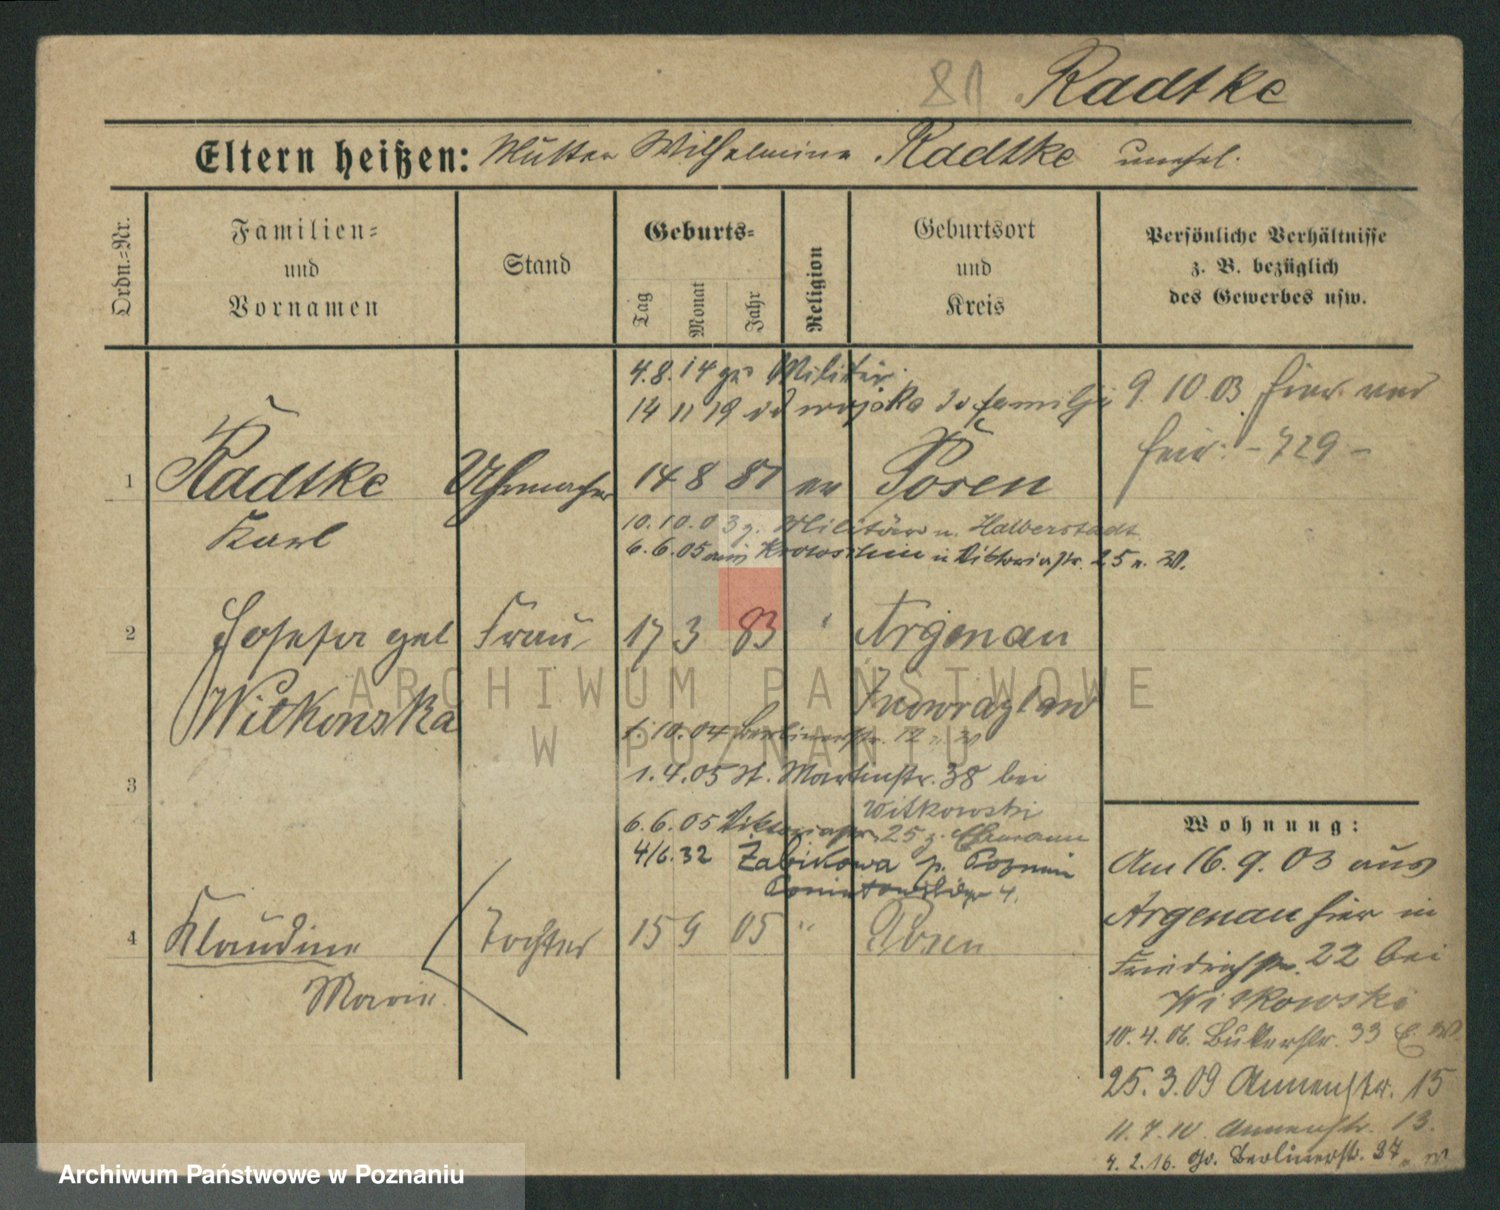 81. Radtke
Eltern heißen: Mutter Wilhelmine Radtke unehel.
Ordn.-Nr.
Familien-
und
Vornamen
Stand
Geburts-
Tag
Monat
Jahr
Religion
Geburtsort
und
Kreis
Persönliche Verhältnisse
z. B. bezüglich
des Gewerbes usw.
4.8.14 zu Militär.
14 11 19 od wojska do familji
9.10.03 hier
729 –
1 Radtke Uhrmacher 14 8 81 ev Posen
Karl
10.10.03 z. Militär n. Halberstadt
6.6.05 aus Krotoschin in Viktoriastr. 25 n. W.
2 Josefa geb Frau 17 3 83 " Argenau
Witkowska Inowrazlaw
1.10.04 Berlinerstr. 12
3 1.4.05 St. Martinstr. 38 bei
Witkowski
6.6.05 Viktoriastr. 25 z. Ehemann
4/6.32 Żabikowa p. Poznań
4.
4 Klaudine Tochter 15 9 05 " Posen
Marie
Wohnung:
Am 16.9.03 aus
Argenau hier in
Friedrichstr. 22 bei
Witkowski
10.4.06. Bukerstr. 33 E. W.
25.3.09 Annenstr. 15
11.7.10 Annenstr. 13.
4.2.16. Gr. Berlinerstr. 37
ARCHIWUM PAŃSTWOWE
W POZNANIU
Archiwum Państwowe w Poznaniu